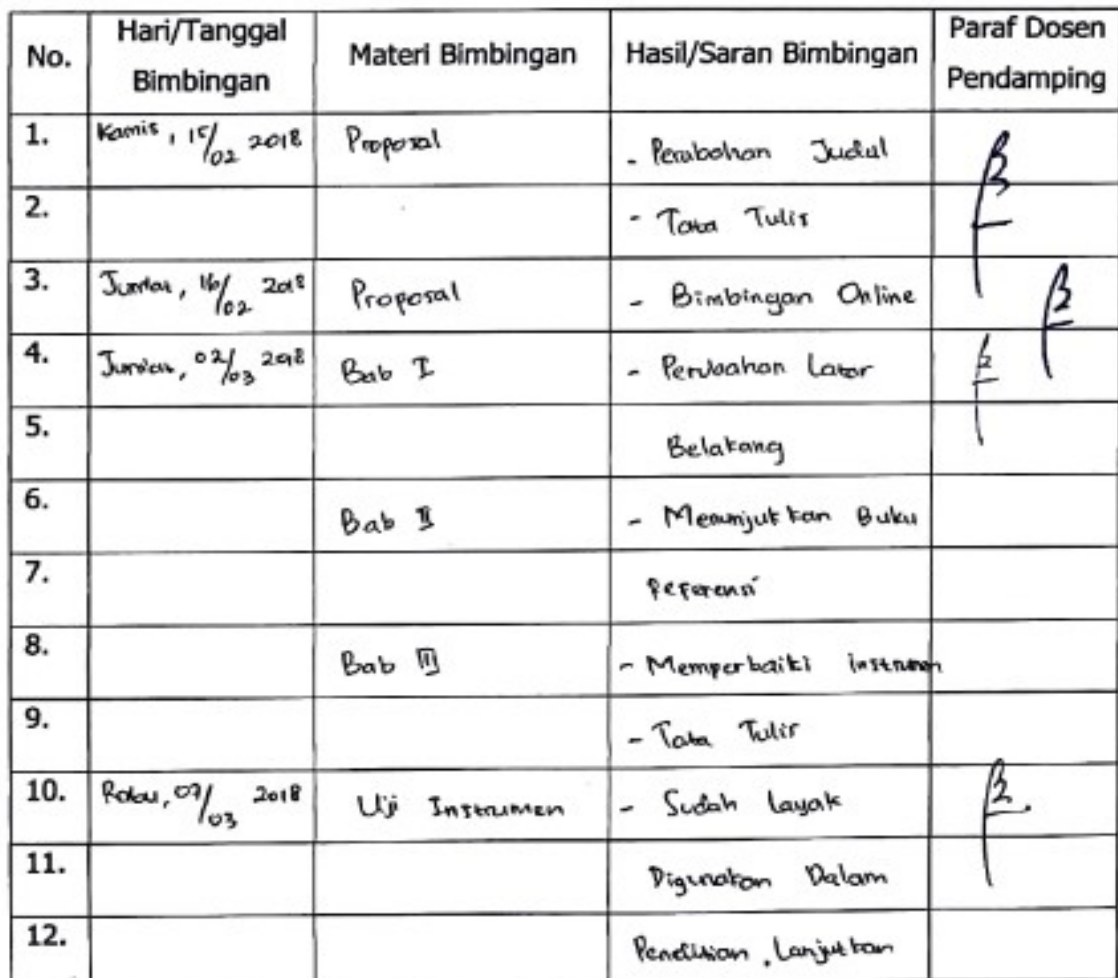 No. Hari/Tanggal Bimbingan Materi Bimbingan Hasil/Saran Bimbingan Paraf Dosen Pendamping
1. Kamis, 15/02 2018 Proposal - Perubahan Judul
2. - Tata Tulis
3. Jumat, 16/02 2018 Proposal - Bimbingan Online
4. Jumat, 02/03 2018 Bab I - Perubahan Latar
5. Belakang
6. Bab II - Menunjukkan Buku
7. Referensi
8. Bab III - Memperbaiki instrumen
9. - Tata Tulis
10. Rabu, 07/03 2018 Uji Instrumen - Sudah Layak
11. Digunakan Dalam
12. Penelitian, Lanjutkan